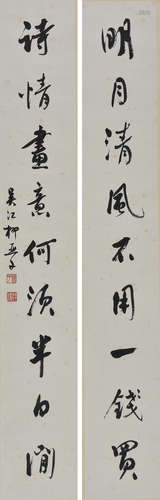 明月清風不用一錢買
詩情畫意何須半日閒
吳江柳亞子